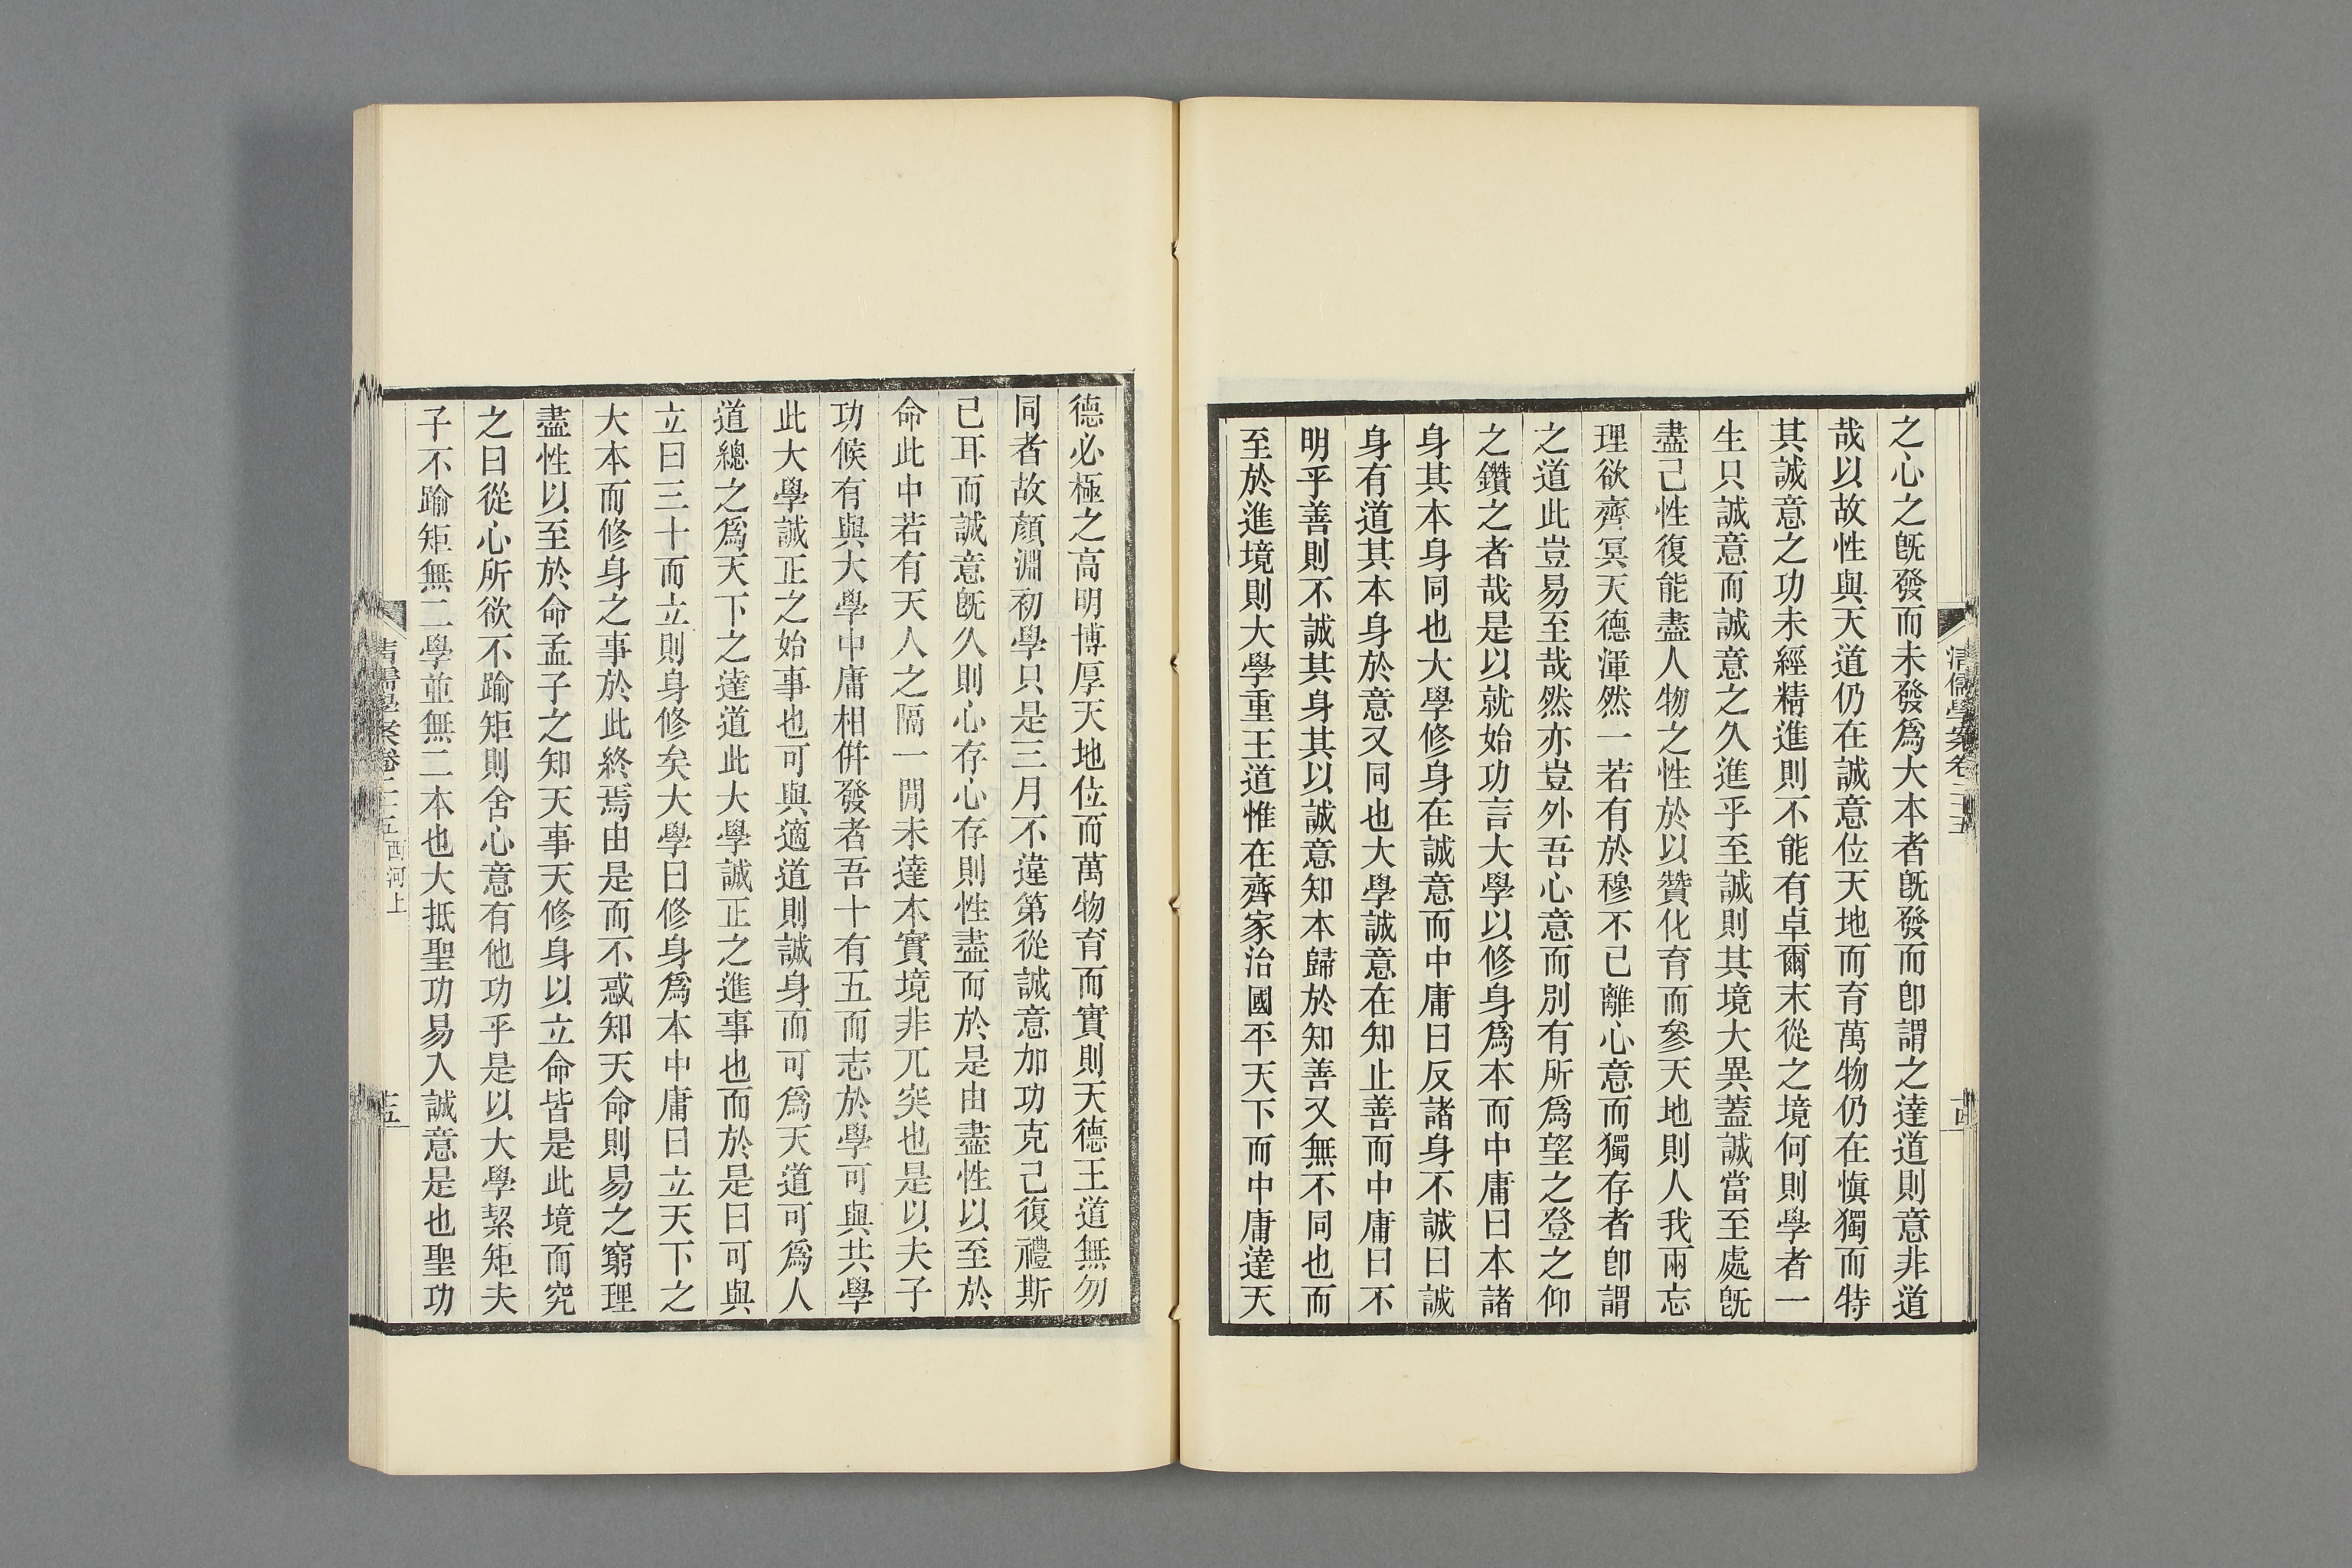 之心之旣發而未發爲大本者旣發而卽謂之達道則意非道
哉以故性與天道仍在誠意位天地而育萬物仍在愼獨而特
其誠意之功未經精進則不能有卓爾末從之境何則學者一
生只誠意而誠意之久進乎至誠則其境大異蓋誠當至處旣
盡己性復能盡人物之性於以贊化育而參天地則人我兩忘
理欲齊冥天德渾然一若有於穆不已離心意而獨存者卽謂
之道此豈易至哉然亦豈外吾心意而別有所爲望之登之仰
之鑽之者哉是以就始功言大學以修身爲本而中庸曰本諸
身其本身同也大學修身在誠意而中庸曰反諸身不誠曰誠
身有道其本身於意又同也大學誠意在知止善而中庸曰不
明乎善則不誠其身其以誠意知本歸於知善又無不同也而
至於進境則大學重王道惟在齊家治國平天下而中庸達天
清儒學案卷二十五
十四
德必極之高明博厚天地位而萬物育而實則天德王道無勿
同者故顏淵初學只是三月不違第從誠意加功克己復禮斯
已耳而誠意旣久則心存心存則性盡而於是由盡性以至於
命此中若有天人之隔一閒未達本實境非兀突也是以夫子
功候有與大學中庸相倂發者吾十有五而志於學可與共學
此大學誠正之始事也可與適道則誠身而可爲天道可爲人
道總之爲天下之達道此大學誠正之進事也而於是曰可與
立曰三十而立則身修矣大學曰修身爲本中庸曰立天下之
大本而修身之事於此終焉由是而不惑知天命則易之窮理
盡性以至於命孟子之知天事天修身以立命皆是此境而究
之曰從心所欲不踰矩則舍心意有他功乎是以大學絜矩夫
子不踰矩無二學並無二本也大抵聖功易入誠意是也聖功
清儒學案卷二十五 西河上
十五